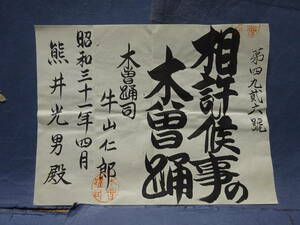 第四九貳六號
木曽踊
相許候事
木曽踊司
牛山仁郎
昭和三十一年四月
熊井光男殿